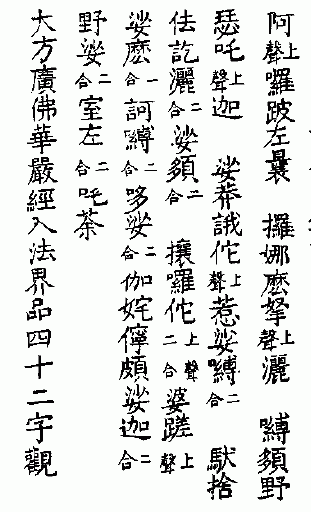 阿上聲囉跛左曩 攞娜麼拏上聲灑 嚩須野
瑟吒上聲迦 娑莽誐佗上聲惹娑嚩二合 馱捨
佉訖灑二合娑須二合 攘囉佗上聲二合婆蹉上聲
娑麼一合訶嚩二合哆娑二合伽姹儜頗娑迦二合
野娑二合室左二合吒荼
大方廣佛華嚴經入法界品四十二字觀